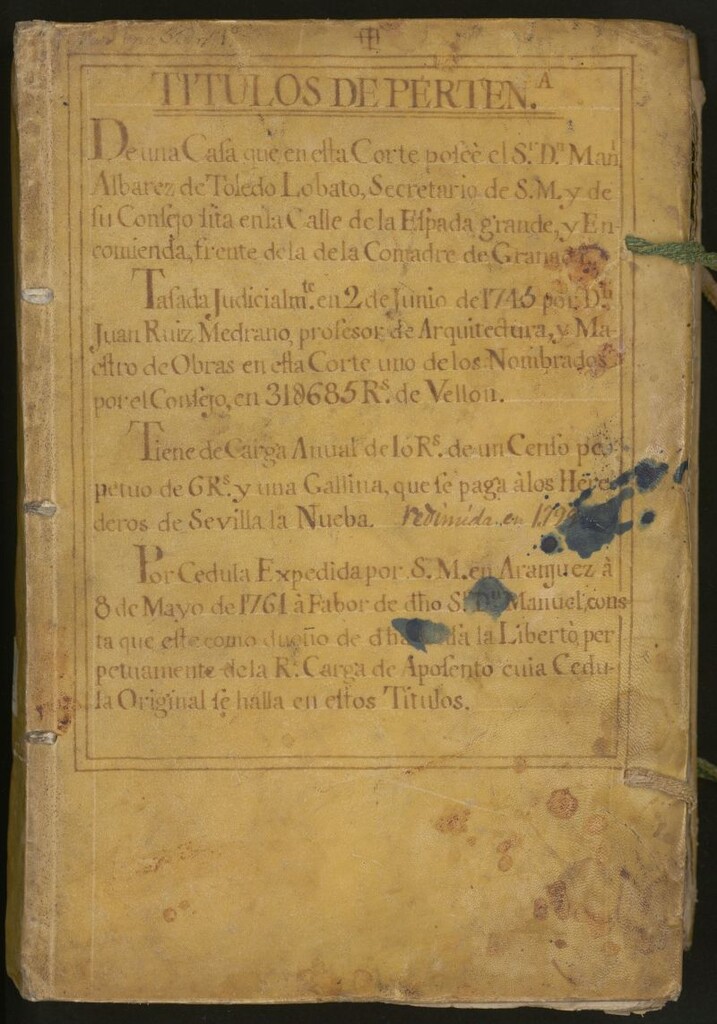 TITULOS DE PERTEN.A
De una Casa que en esta Corte poseè el Sr. Dn. Man.
Albarez de Toledo Lobato, Secretario de S.M. y de
su Consejo sita en la Calle de la Espada grande, y En-
comienda, frente de la de la Comadre de
Tasada Judicialmte. en 2 de Junio de 1745 por Dn.
Juan Ruiz Medrano, profesor de Arquitectura, y Ma-
estro de Obras en esta Corte uno de los Nombrados
por el Consejo, en 318685 Rs. de Vellon.
Tiene de Carga Anual de 16 Rs. de un Censo per-
petuo de 6 Rs. y una Gallina, que se paga à los Here-
deros de Sevilla la Nueba. redimida en
Por Cedula Expedida por S. M. en Aranjuez à
8 de Mayo de 1761 à Fabor de dho Sr. Dn. Manuel, cons-
ta que este como dueño de la Libertò, per
petuamente de la Rl. Carga de Aposento cuia Cedu-
la Original se halla en estos Titulos.